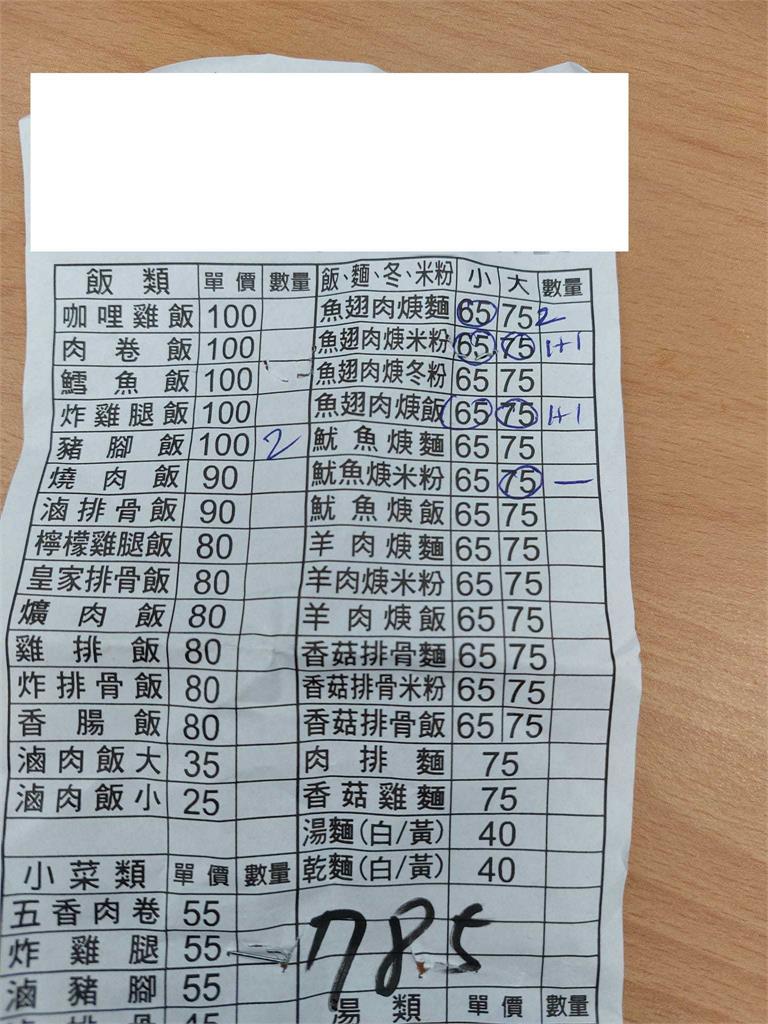 飯類 單價 數量 飯、麵、冬、米粉 小 大 數量
咖哩雞飯 100 魚翅肉焿麵 65 75 2
肉卷飯 100 魚翅肉焿米粉 65 75 1+1
鱈魚飯 100 魚翅肉焿冬粉 65 75
炸雞腿飯 100 魚翅肉焿飯 65 75 1+1
豬腳飯 100 2 魷魚焿麵 65 75
燒肉飯 90 魷魚焿米粉 65 75 一
滷排骨飯 90 魷魚焿飯 65 75
檸檬雞腿飯 80 羊肉焿麵 65 75
皇家排骨飯 80 羊肉焿米粉 65 75
爌肉飯 80 羊肉焿飯 65 75
雞排飯 80 香菇排骨麵 65 75
炸排骨飯 80 香菇排骨米粉 65 75
香腸飯 80 香菇排骨飯 65 75
滷肉飯大 35 肉排麵 75
滷肉飯小 25 香菇雞麵 75
湯麵(白/黃) 40
小菜類 單價 數量 乾麵(白/黃) 40
五香肉卷 55
炸雞腿 55 785
滷豬腳 55
湯類 單價 數量